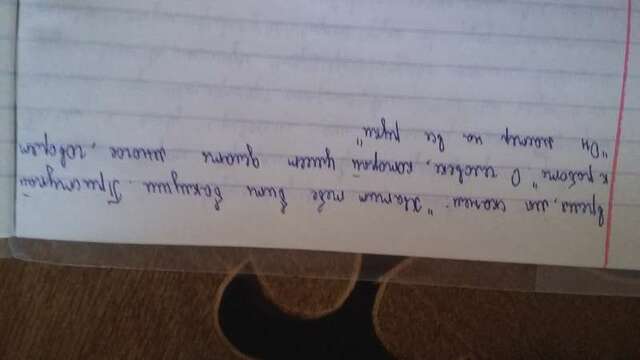 время, мы скажем: "Хватит тебе бить баклуши. Приступай
к работе" О человеке, который умеет делать многое, говорят
"Он мастер на все руки"